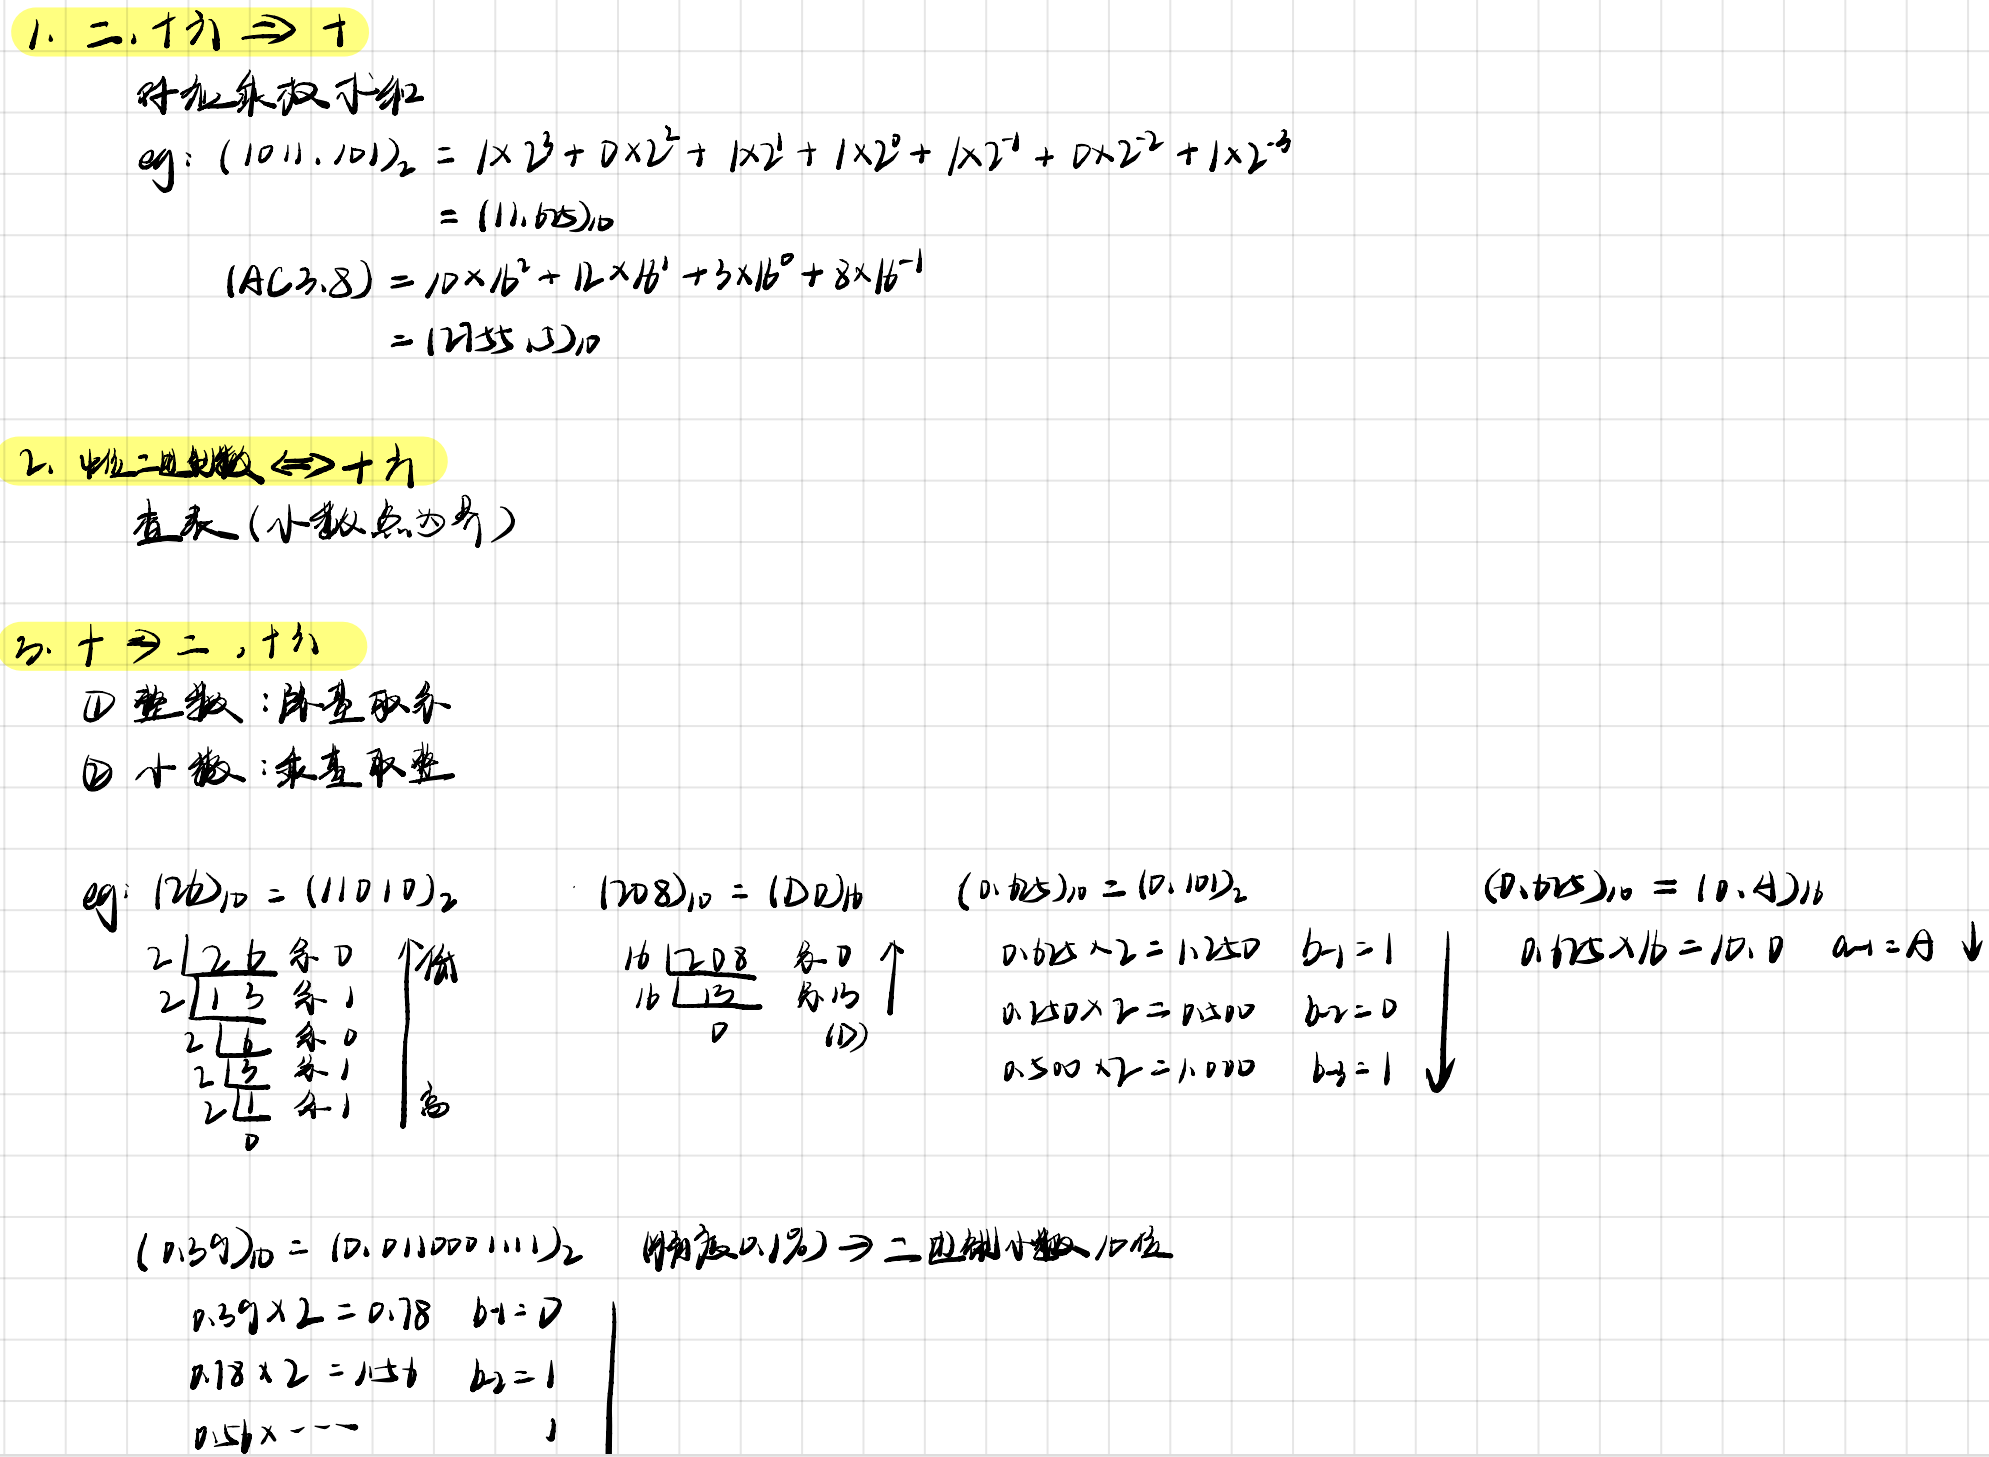 1. 二.十六 ⇒ 十
对应乘权求和
eg: (1011.101)₂ = 1×2³ + 0×2² + 1×2¹ + 1×2⁰ + 1×2⁻¹ + 0×2⁻² + 1×2⁻³
= (11.625)₁₀
(AC3.8) = 10×16² + 12×16¹ + 3×16⁰ + 8×16⁻¹
= (2755.5)₁₀
2. 4位二进制数 ⇔ 十六
查表 (小数点为界)
3. 十 ⇒ 二,十六
① 整数:除基取余
② 小数:乘基取整
eg: (26)₁₀ = (11010)₂
2 26 余 0 ↑低
2 13 余 1
2 6 余 0
2 3 余 1
2 1 余 1 高
0
(208)₁₀ = (D0)₁₆
16 208 余 0 ↑
16 13 余 13
0 (D)
(0.625)₁₀ = (0.101)₂
0.625×2 = 1.250 b₋₁ = 1
0.250×2 = 0.500 b₋₂ = 0
0.500×2 = 1.000 b₋₃ = 1 ↓
(0.625)₁₀ = (0.A)₁₆
0.625×16 = 10.0 a₋₁ = A ↓
(0.39)₁₀ = (0.0110001111)₂ (精度0.1%) → 二进制小数10位
0.39×2 = 0.78 b₋₁ = 0
0.78×2 = 1.56 b₋₂ = 1
0.56× ---- 1